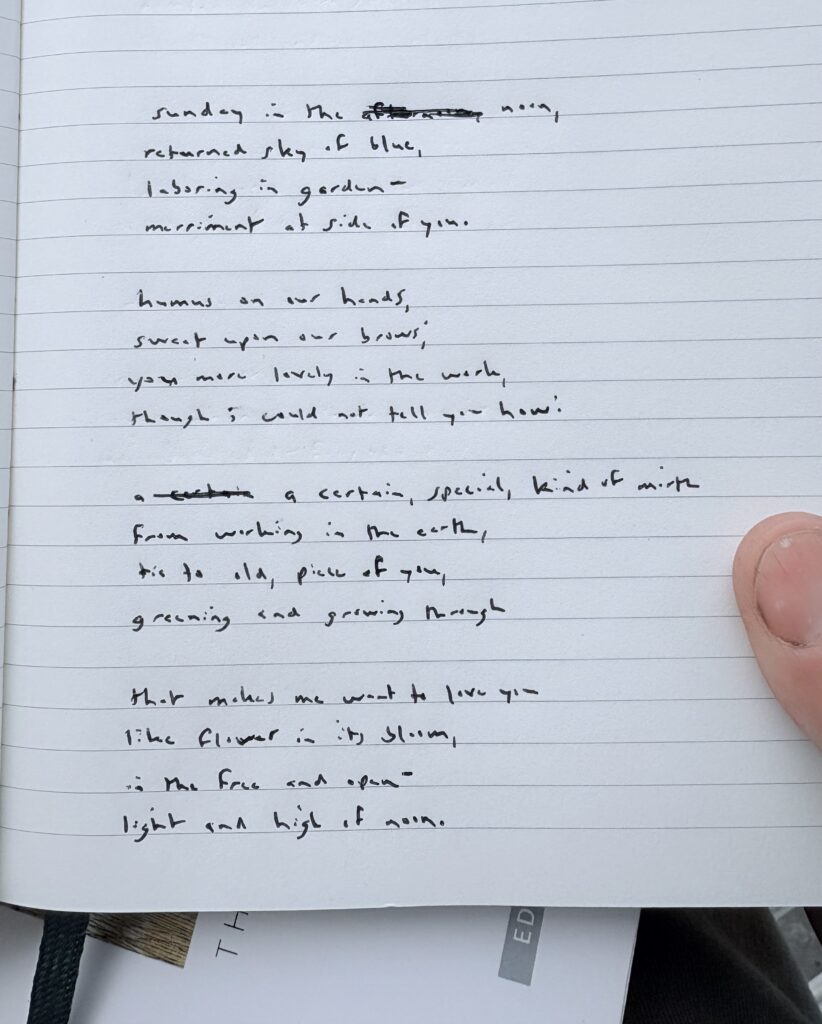 sunday in the afternoon, noon,
returned sky of blue,
laboring in garden-
merriment at side of you.
humus on our hands,
sweat upon our brows;
you more lovely in the work,
though i could not tell you how:
a certain a certain, special, kind of mirth
from working in the earth,
tis to old, piece of you,
greening and growing through
that makes me want to love you
like flower in its bloom,
in the free and open-
light and high of noon.
TH
ED